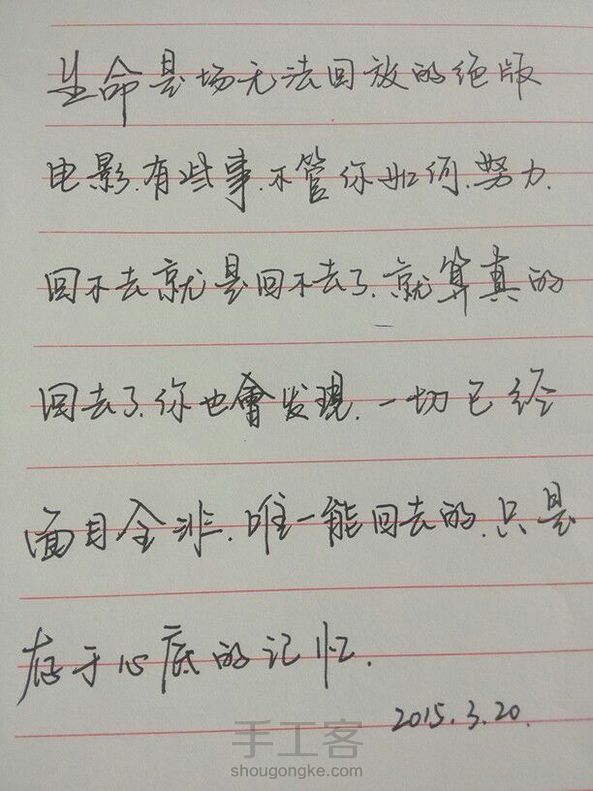 生命是场无法回放的绝版
电影.有些事.不管你如何.努力.
回不去就是回不去了.就算真的
回去了.你也會发現.一切已经
面目全非.唯一能回去的.只是
存于心底的记忆.
2015.3.20.
手工客
shougongke.com